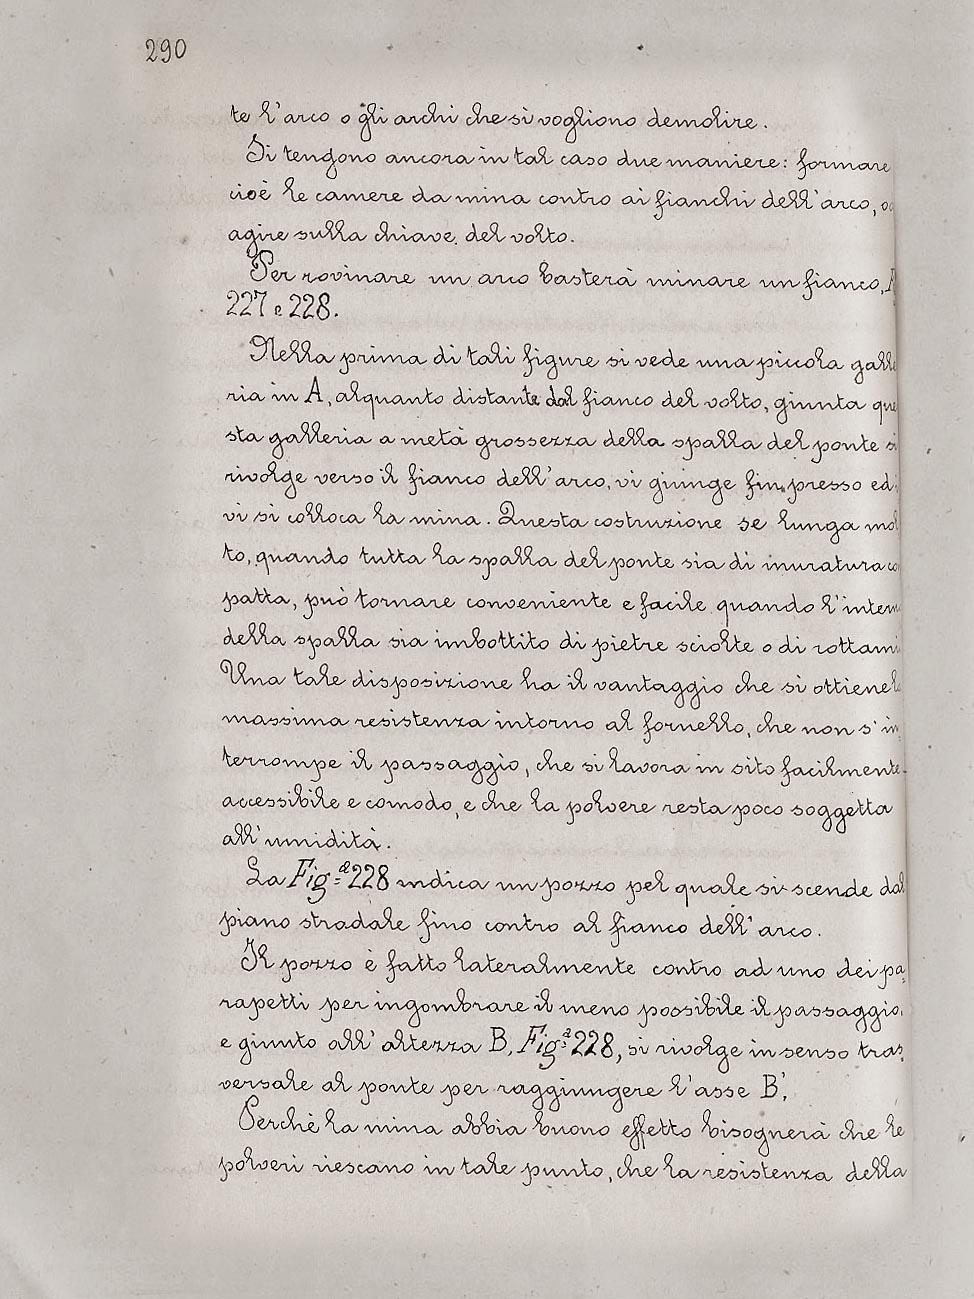 290
te l'arco o gli archi che si vogliono demolire.
Si tengono ancora in tal caso due maniere: formare
cioè le camere da mina contro ai fianchi dell'arco,
agire sulla chiave del volto.
Per rovinare un arco basterà minare un fianco,
227 e 228.
Nella prima di tali figure si vede una piccola galle
ria in A, alquanto distante dal fianco del volto, giunta que
sta galleria a metà grossezza della spalla del ponte si
rivolge verso il fianco dell'arco, vi giunge fin presso ed
vi si colloca la mina. Questa costruzione se lunga mol
to, quando tutta la spalla del ponte sia di muratura co
patta, può tornare conveniente e facile quando l'intern
della spalla sia imbottito di pietre sciolte o di rottami
Una tale disposizione ha il vantaggio che si ottiene la
massima resistenza intorno al fornello, che non s'in
terrompe il passaggio, che si lavora in sito facilmente
accessibile e comodo, e che la polvere resta poco soggetta
all'umidità.
La Fig.ª 228 indica un pozzo pel quale si scende dal
piano stradale fino contro al fianco dell'arco.
Il pozzo è fatto lateralmente contro ad uno dei pa
rapetti per ingombrare il meno possibile il passaggio,
e giunto all'altezza B, Fig.ª 228, si rivolge in senso tras
versale al ponte per raggiungere l'asse B'.
Perchè la mina abbia buono effetto bisognerà che le
polveri riescano in tale punto, che la resistenza della